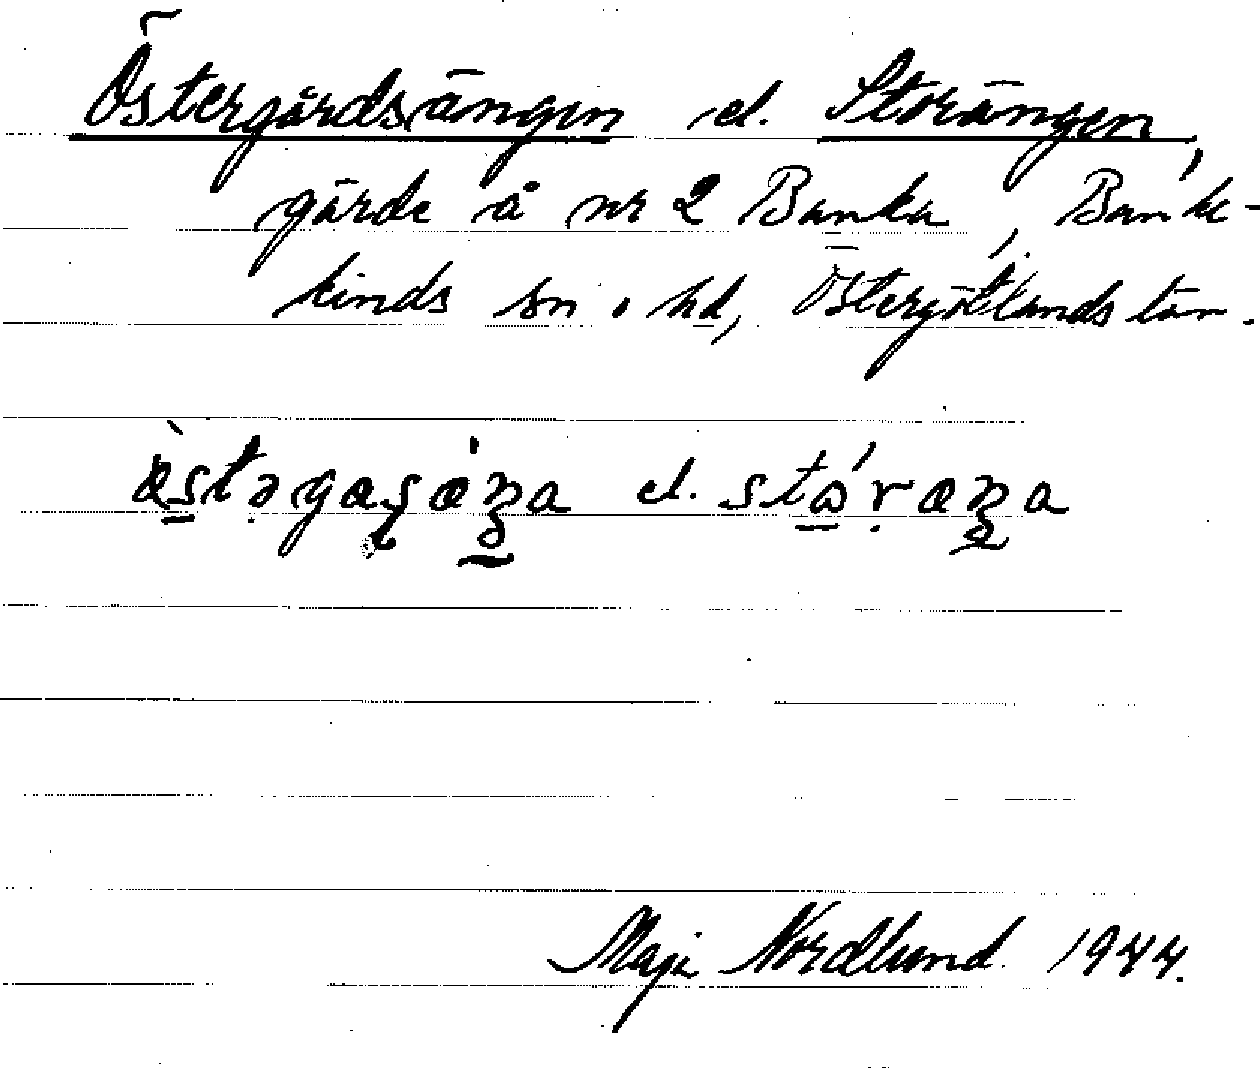 Östergårdsängen el. Storängen,
gärde å nr 2 Banka, Banke-
kinds sn o hd, Östergötlands län.
el.
Maja Nordlund 1944.